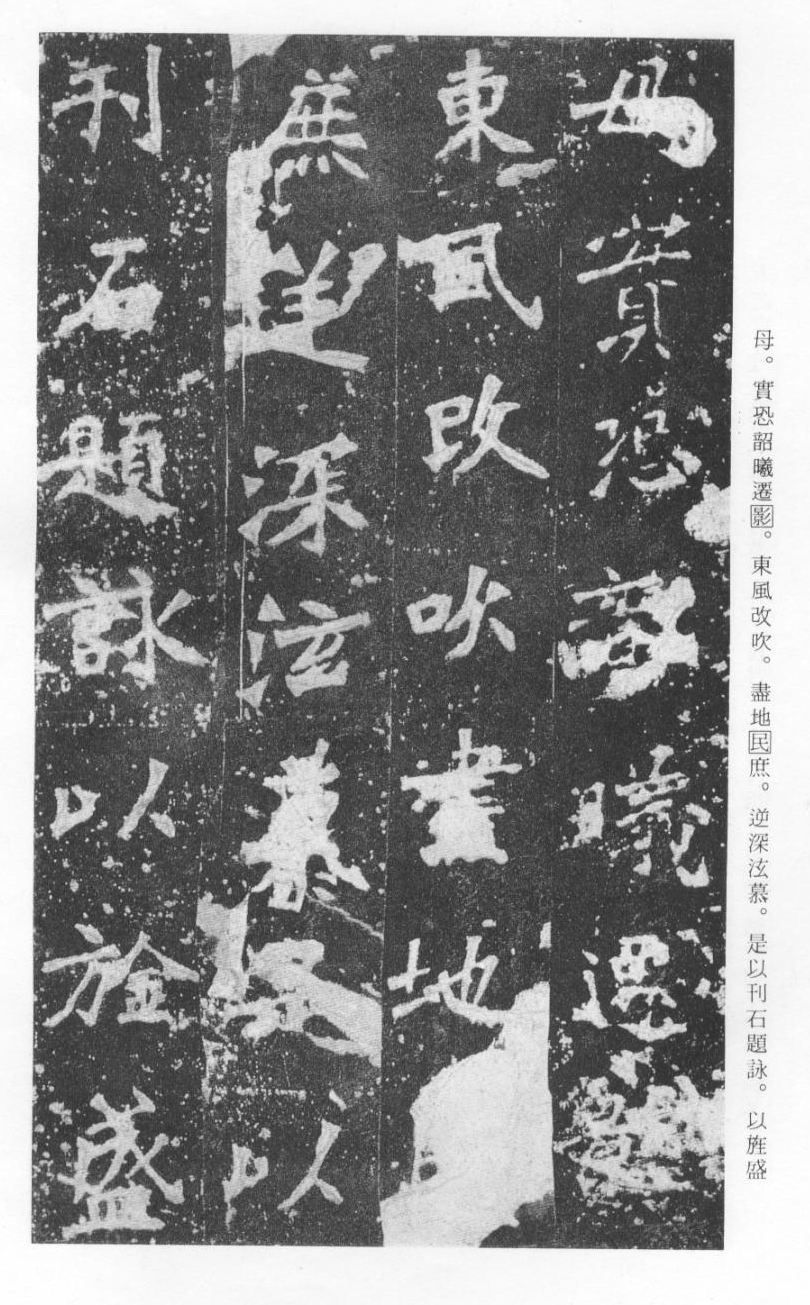 母實恐韶曦遷影
東風改吹盡地
庶逆深泫慕是以
刊石題詠以旌盛
母。實恐韶曦遷影。東風改吹。盡地民庶。逆深泫慕。是以刊石題詠。以旌盛